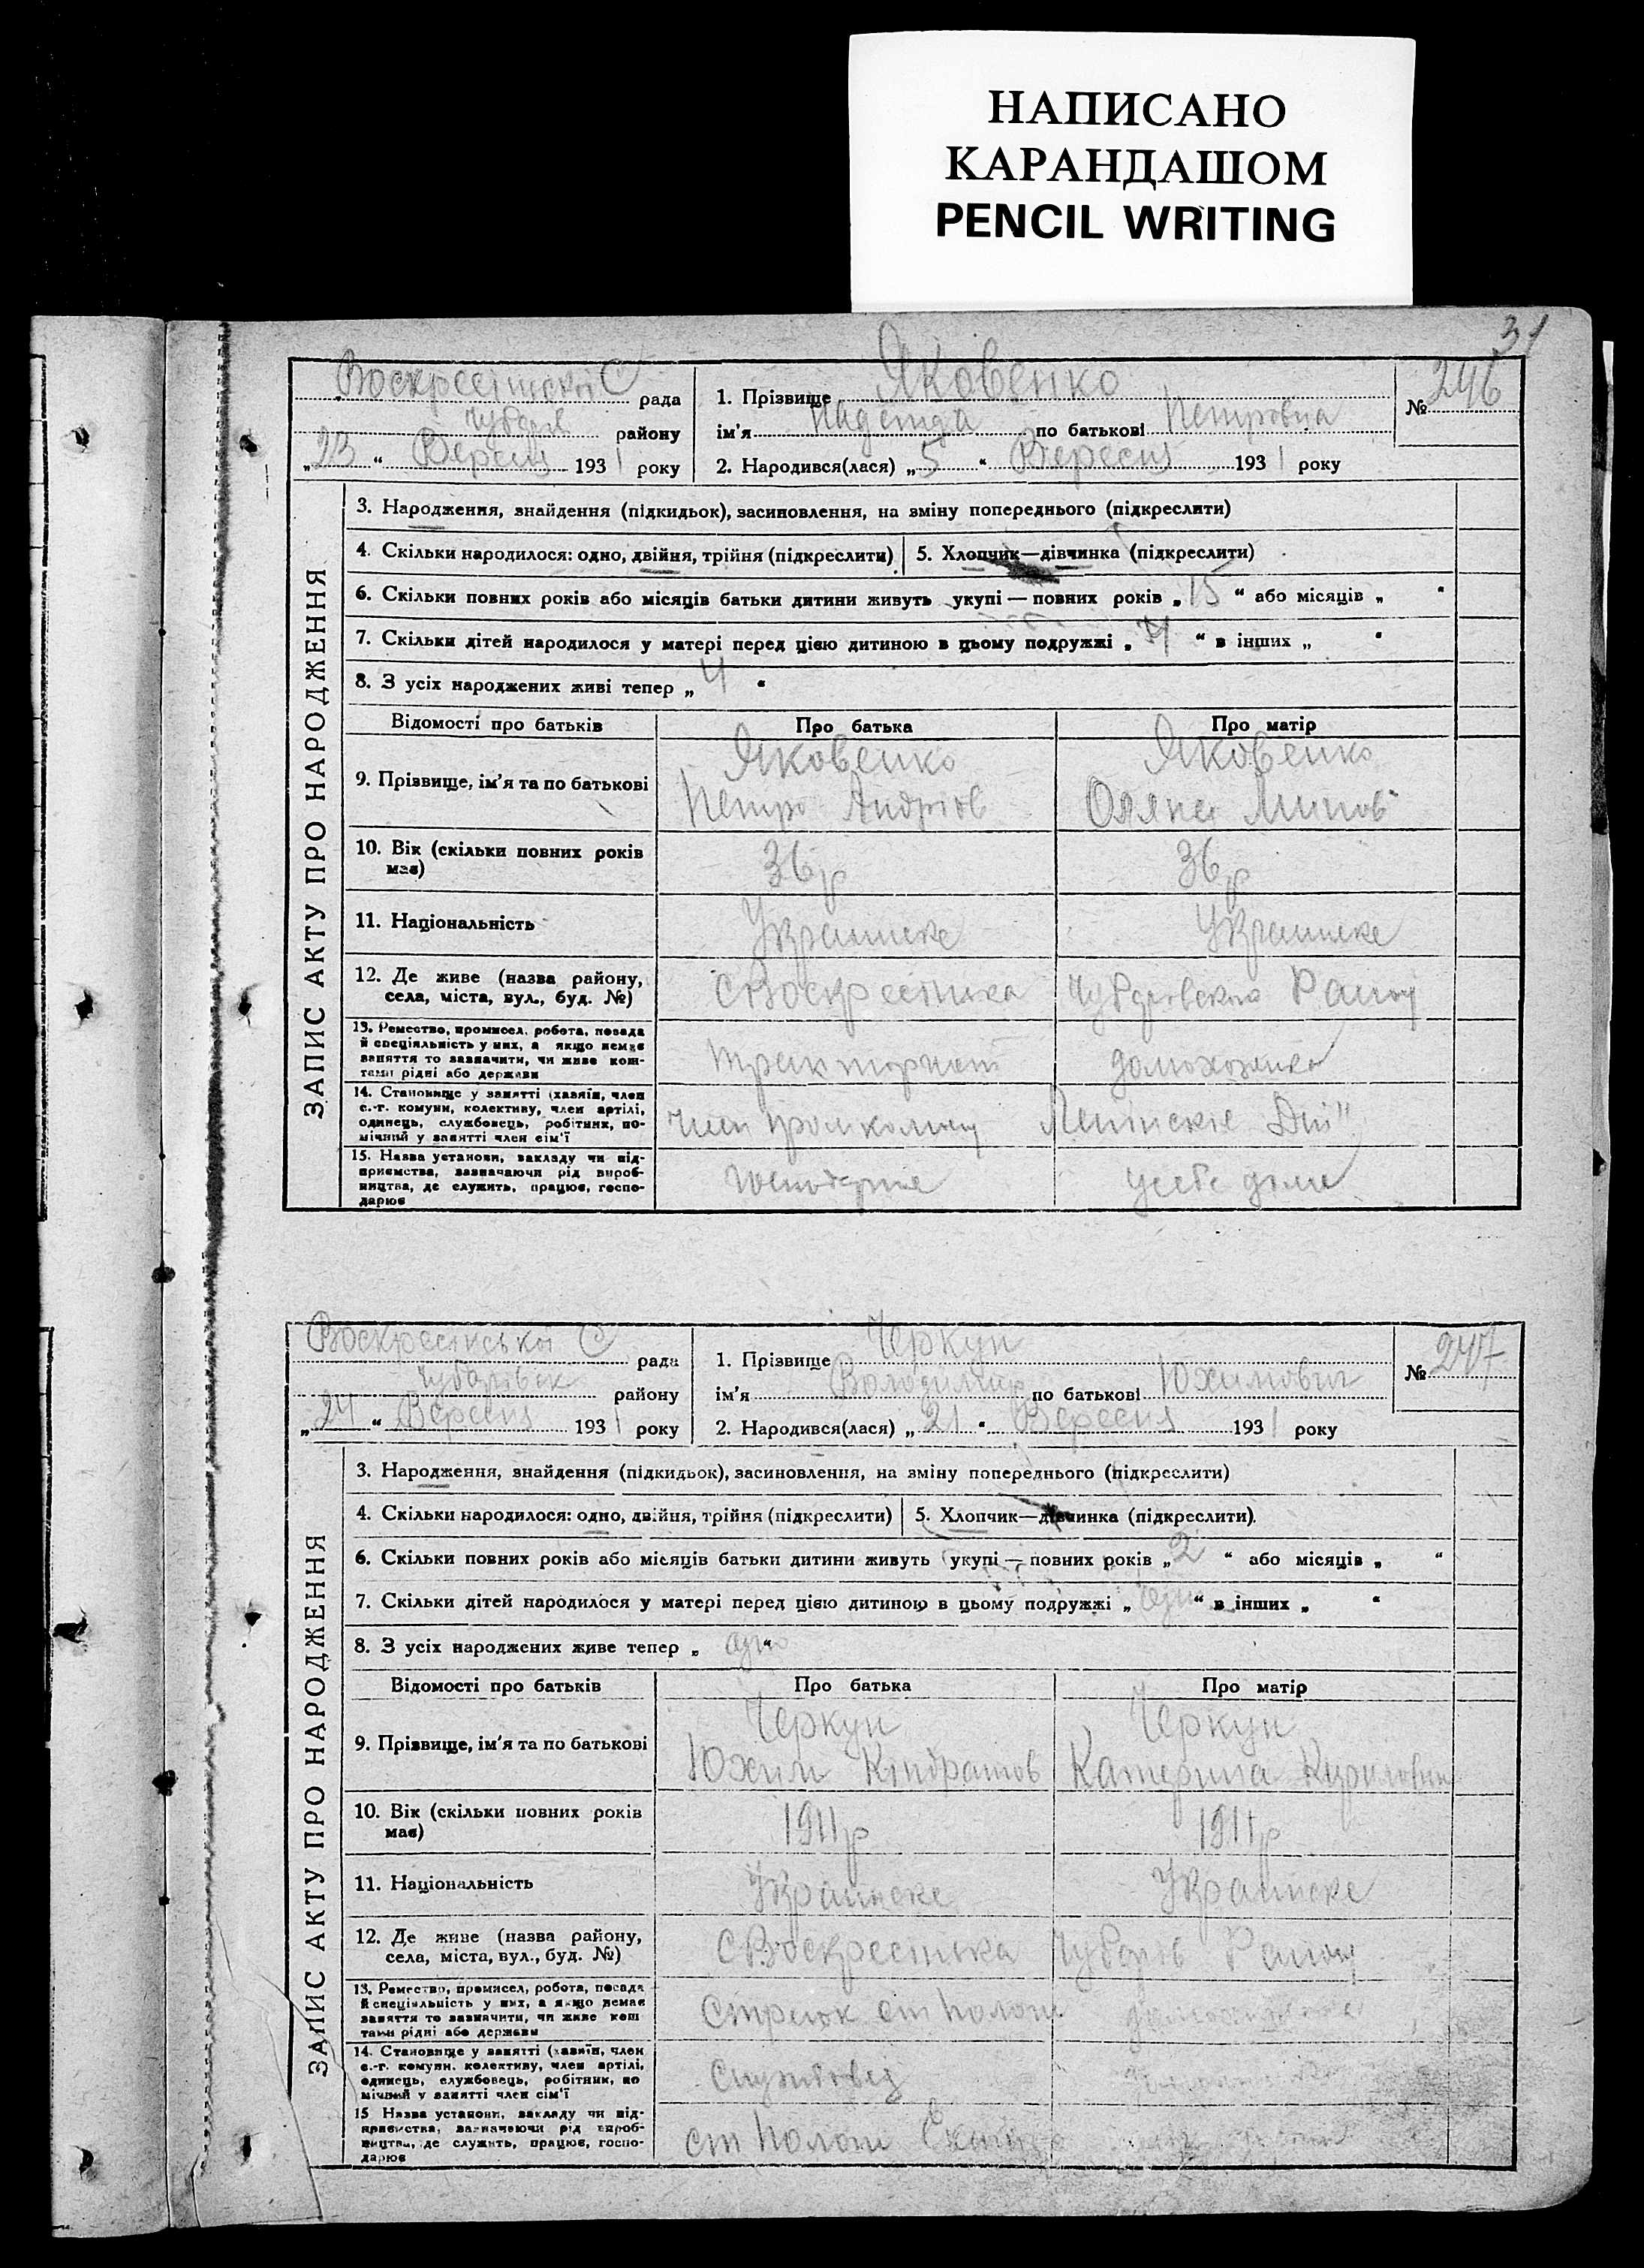 НАПИСАНО
КАРАНДАШОМ
PENCIL WRITING
31
ЗАПИС АКТУ ПРО НАРОДЖЕННЯ
Воскресінської С рада
Чубарів району
„23“ Вересня 1931 року
1. Прізвище Яковенко
ім'я Надежда по батькові Петровна
2. Народився(лася) „5“ Вересня 1931 року
№ 246
3. Народження, знайдення (підкидьок), засиновлення, на зміну попереднього (підкреслити)
4. Скільки народилося: одно, двійня, трійня (підкреслити) 5. Хлопчик—дівчинка (підкреслити)
6. Скільки повних років або місяців батьки дитини живуть укупі — повних років „15“ або місяців „ “
7. Скільки дітей народилося у матері перед цією дитиною в цьому подружжі „ “ в інших „ “
8. З усіх народжених живі тепер „4“
Відомості про батьків Про батька Про матір
9. Прізвище, ім'я та по батькові Яковенко Яковенко
Петро Андріов
10. Вік (скільки повних років має) 36р 36р
11. Національність Украинске Украинске
12. Де живе (назва району, села, міста, вул., буд. №) С Воскресінка Чубаровского Району
13. Ремество, промисел, робота, посада й спеціяльність у них, а якщо немає заняття то зазначити, чи живе коштами рідні або держави тракторист домохозяйка
14. Становище у занятті (хазяїн, член с.-г. комуни, колективу, член артілі, одинець, службовець, робітник, помічний у занятті член сім'ї
15. Назва установи, закладу чи підприємства, зазначаючи рід виробництва, де служить, працює, господарює у себе дома
ЗАПИС АКТУ ПРО НАРОДЖЕННЯ
Воскресінської С рада
Чубарівск району
„24“ Вересня 1931 року
1. Прізвище Черкун
ім'я Володимир по батькові Юхимович
2. Народився(лася) „21“ Вересня 1931 року
№ 247
3. Народження, знайдення (підкидьок), засиновлення, на зміну попереднього (підкреслити)
4. Скільки народилося: одно, двійня, трійня (підкреслити) 5. Хлопчик—дівчинка (підкреслити).
6. Скільки повних років або місяців батьки дитини живуть укупі — повних років „2“ або місяців „ “
7. Скільки дітей народилося у матері перед цією дитиною в цьому подружжі „ “ в інших „ “
8. З усіх народжених живе тепер „одно“
Відомості про батьків Про батька Про матір
9. Прізвище, ім'я та по батькові Черкун Черкун
Юхим Кіндратов Катерина Кириловна
10. Вік (скільки повних років має) 1911р 1911р
11. Національність Украинске Украинске
12. Де живе (назва району, села, міста, вул., буд. №) С Воскресінка Чубарів Району
13. Ремество, промисел, робота, посада й спеціяльність у них, а якщо немає заняття то зазначити, чи живе коштами рідні або держави Стрелок ст Пологи
14. Становище у занятті (хазяїн, член с.-г. комуни, колективу, член артілі, одинець, службовець, робітник, помічний у занятті член сім'ї Службовец
15 Назва установи, закладу чи підприємства, зазначаючи рід виробництва, де служить, працює, господарює ст Пологи